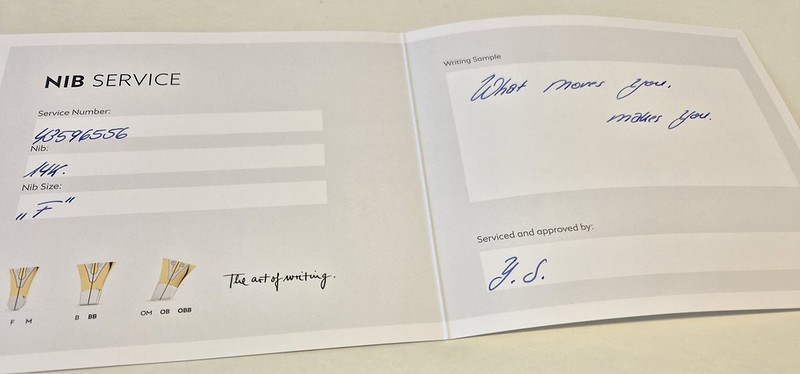 NIB SERVICE
Service Number:
43596556
Nib:
14K.
Nib Size:
„F"
F M
B BB
OM OB OBB
The art of writing.
Writing Sample
What moves you,
makes you.
Serviced and approved by:
Y. S.